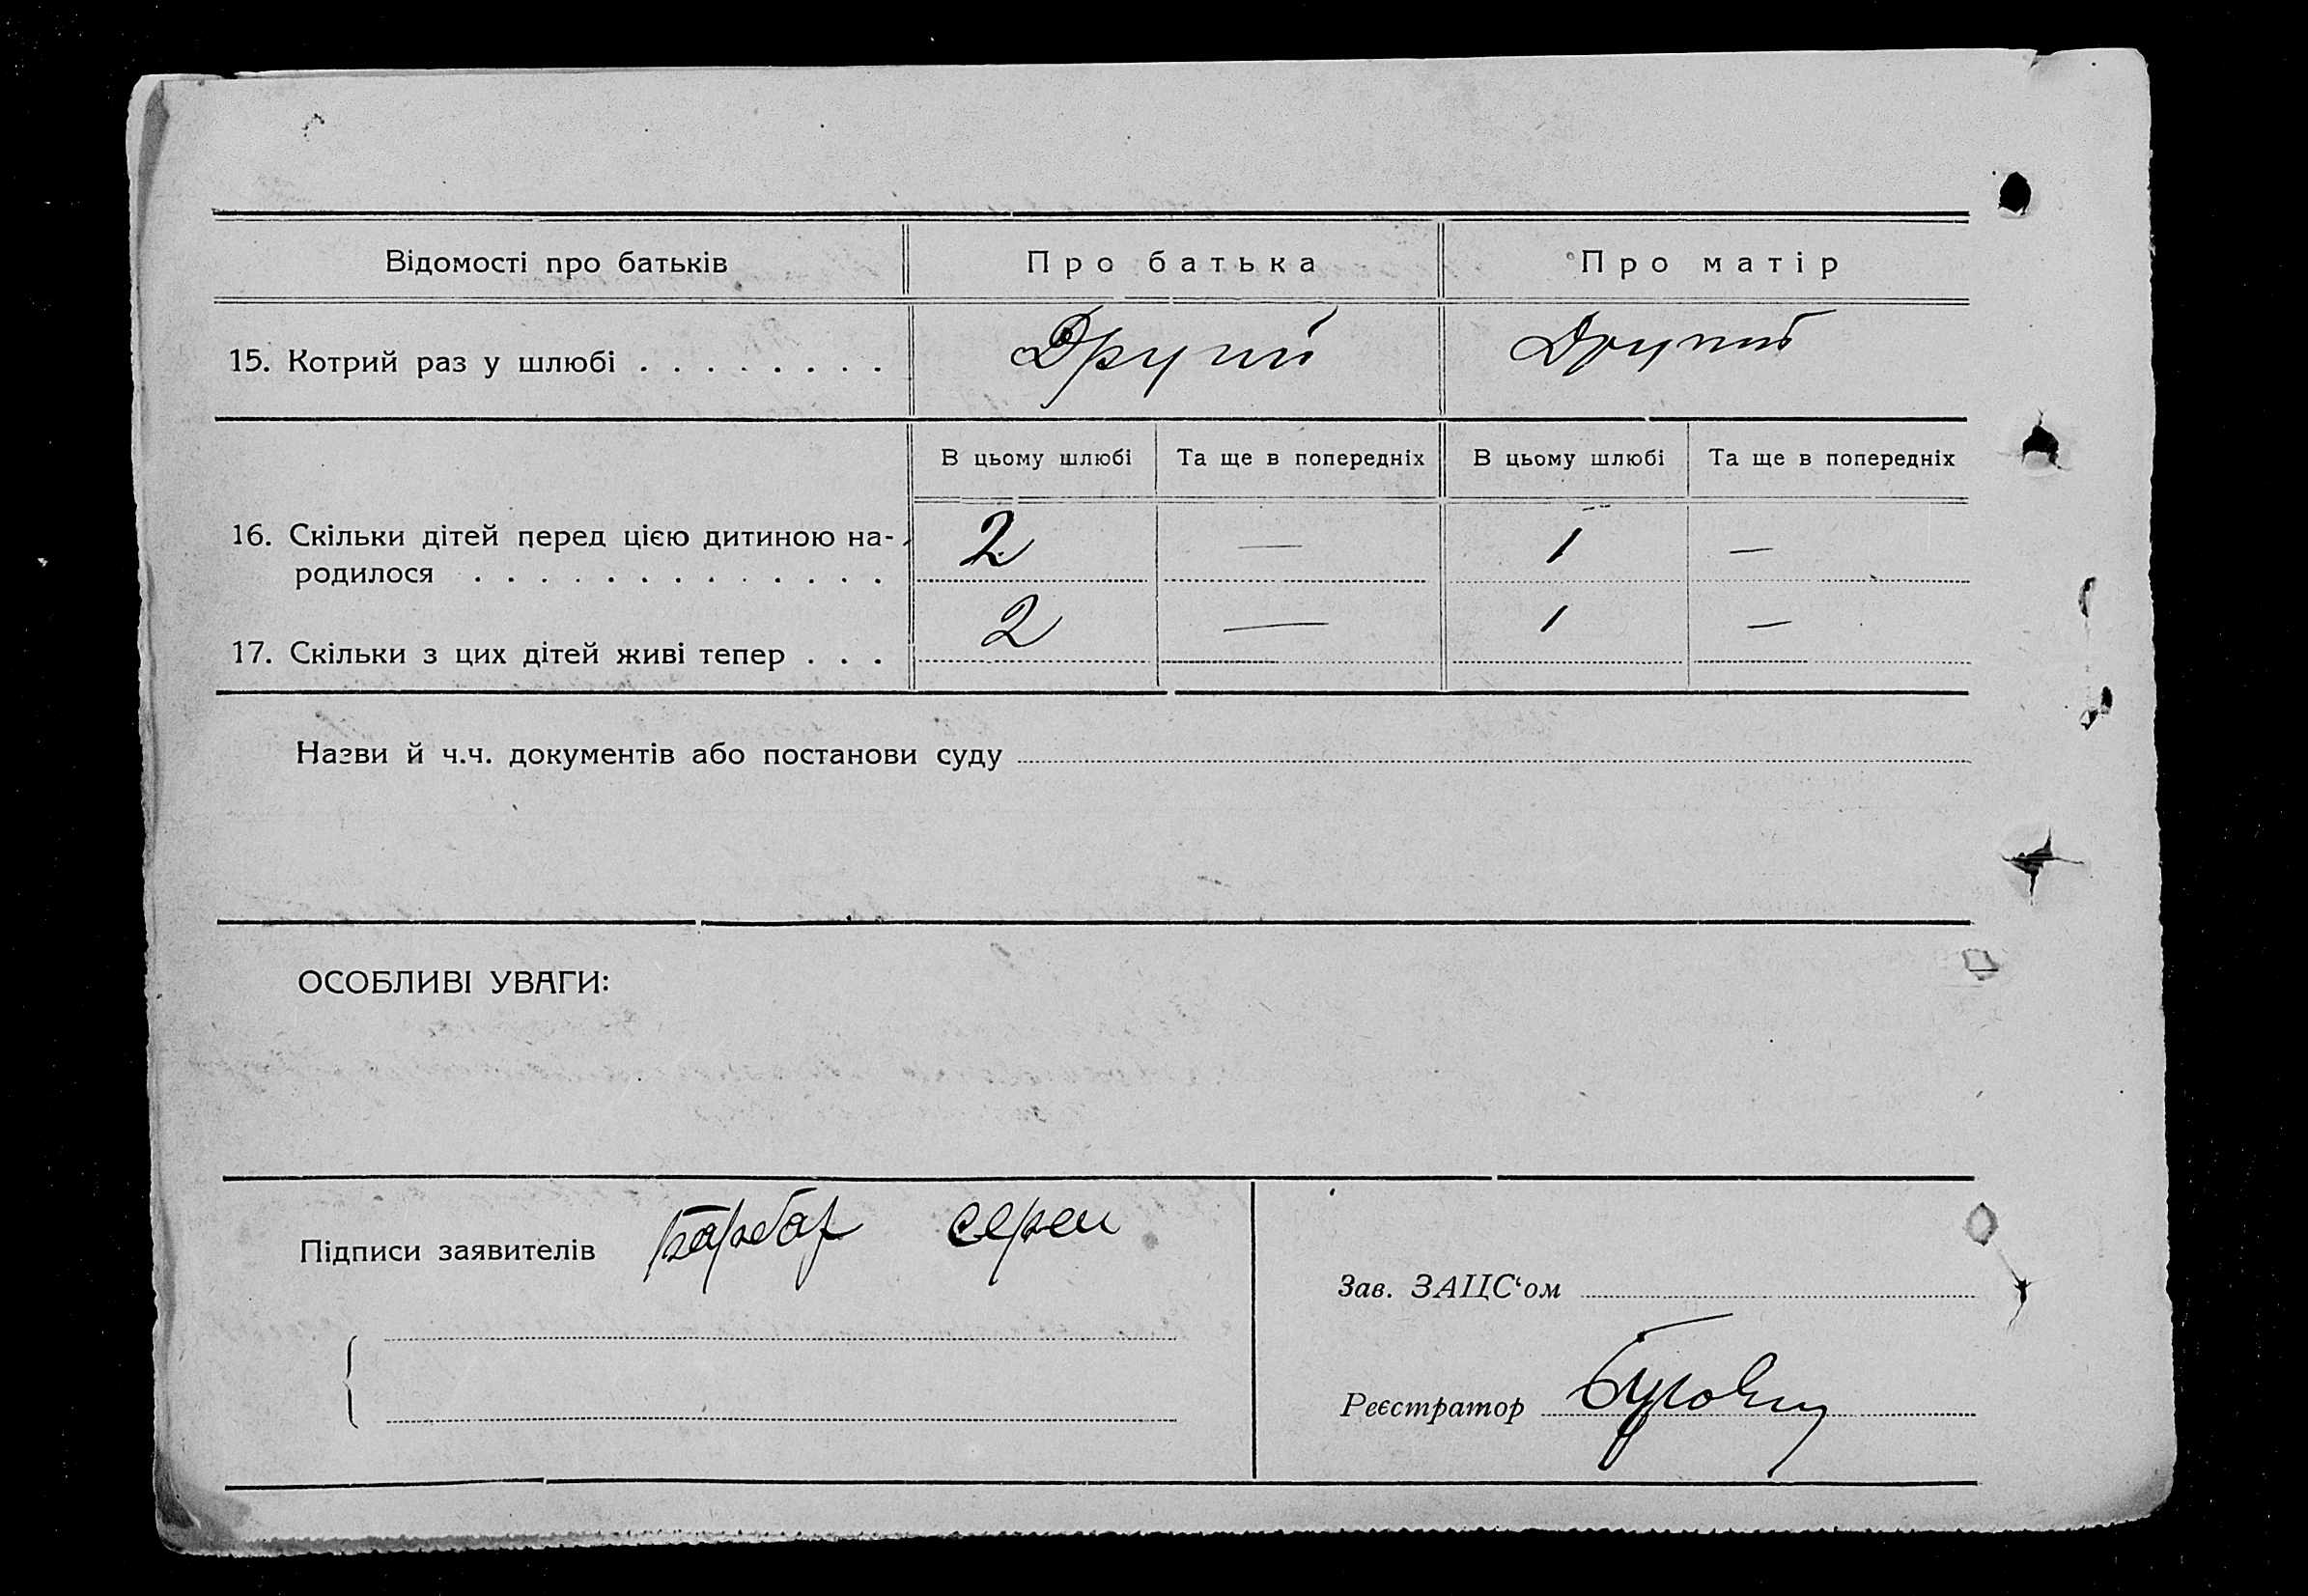 Відомості про батьків Про батька Про матір
15. Котрий раз у шлюбі . . . . . . . . Другий Другий
В цьому шлюбі Та ще в попередніх В цьому шлюбі Та ще в попередніх
16. Скільки дітей перед цією дитиною на-
родилося . . . . . . . . . . . . . 2 — 1 —
17. Скільки з цих дітей живі тепер . . . 2 — 1 —
Назви й ч.ч. документів або постанови суду
ОСОБЛИВІ УВАГИ:
Підписи заявителів
Зав. ЗАЦС‘ом
Реєстратор